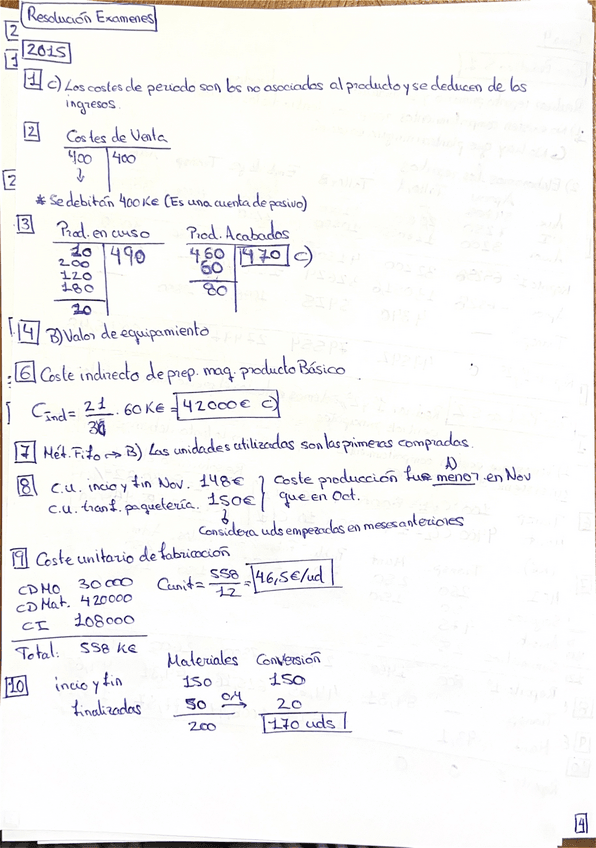 Resolución Examenes
2
1
2015
1 c) Los costes de periodo son los no asociados al producto y se deducen de los
ingresos.
2 Costes de Venta
400 | 400
↓
2
* Se debitan 400 K€ (Es una cuenta de pasivo)
3 Prod. en curso Prod. Acabados
10 | 490 460 | 470 c)
200 60
120 80
180
20
4 B) Valor de equipamiento
6 Coste indirecto de prep. maq. producto Básico
C Ind = 21/30 · 60 K€ = 42000€ c)
7 Mét. Fifo → B) Las unidades utilizadas son las primeras compradas.
8 C.U. incio y fin Nov. 148€ } Coste producción fue menor en Nov
A)
C.U. tranf. paquetería. 150€ que en Oct.
↓
Considera uds empezadas en meses anteriores
9 Coste unitario de fabricación
CDMO 30000 Cunit = 558/12 = 46,5€/ud
CD Mat. 420000
CI 108000
Total: 558 K€
Materiales Conversión
10 incio y fin 150 150
finalizadas 50 0,4→ 20
200 170 uds
4